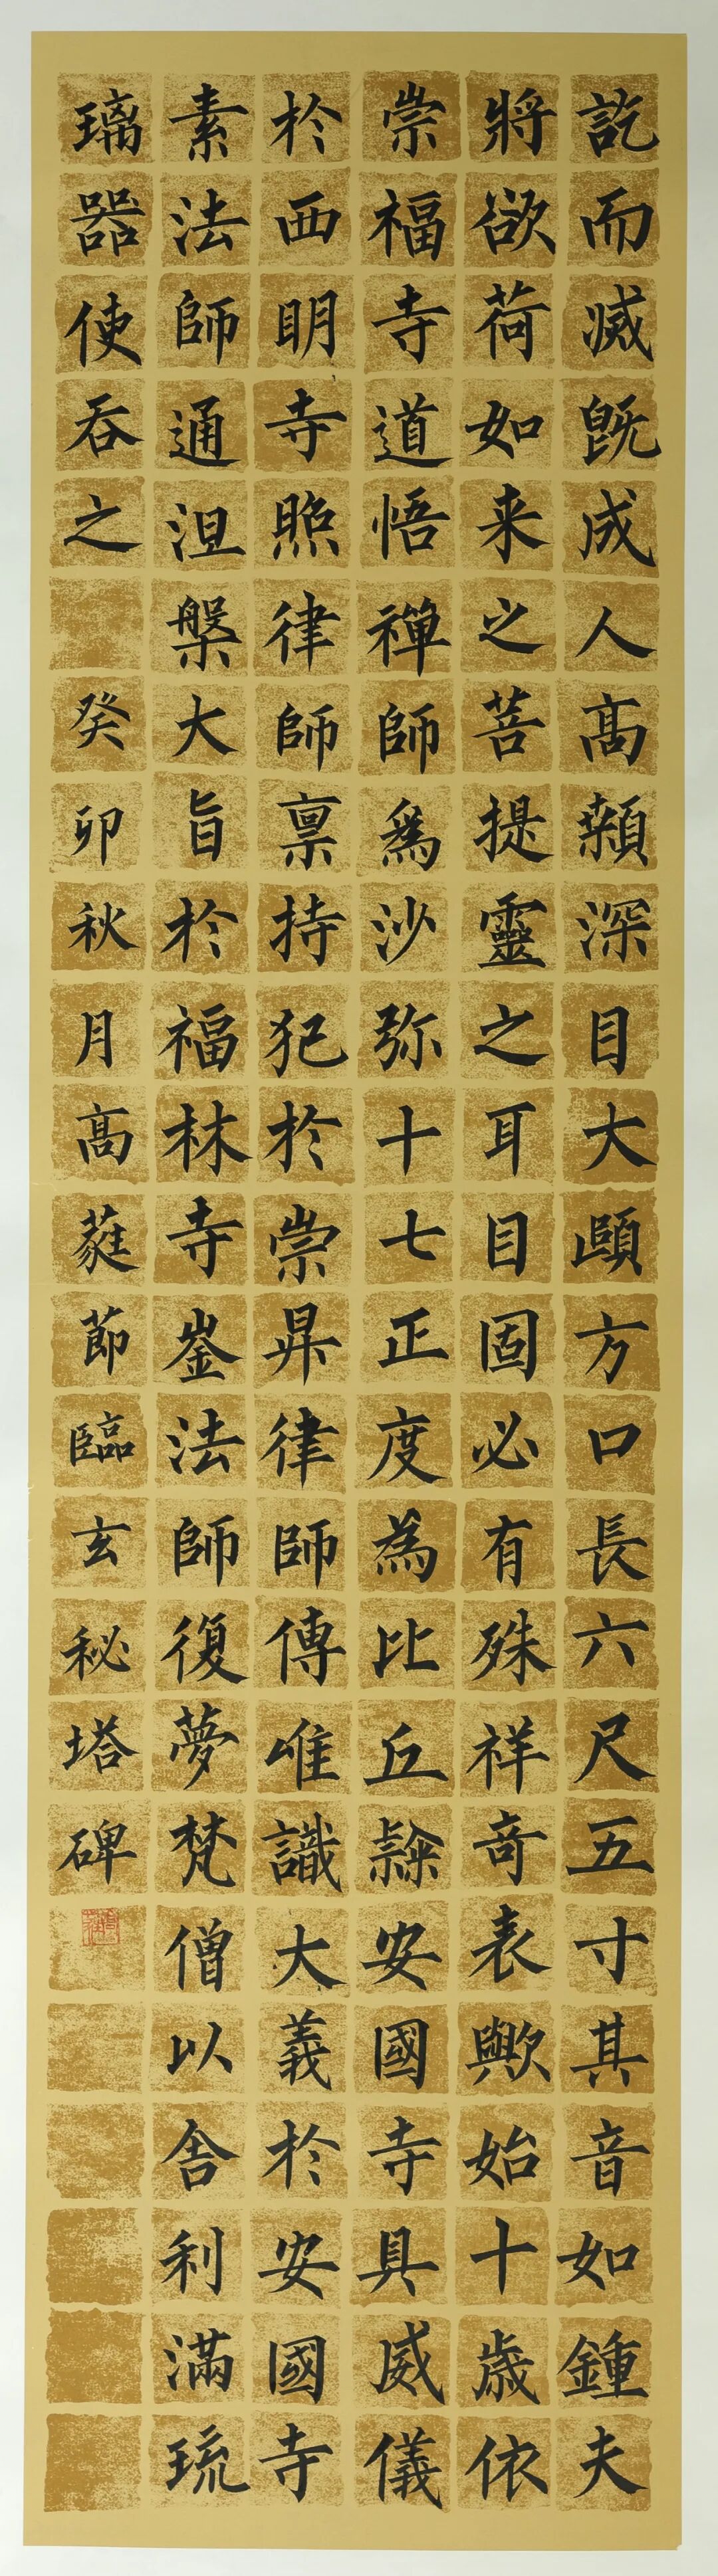 訖而滅既成人高顙深目大頤方口長六尺五寸其音如鍾夫
將欲荷如来之菩提靈之耳目固必有殊祥奇表歟始十歳依
崇福寺道悟禪師爲沙弥十七正度為比丘隸安國寺具威儀
於西明寺照律師禀持犯於崇昇律師傳唯識大義於安國寺
素法師通涅槃大旨於福林寺崟法師復夢梵僧以舎利滿琉
璃器使吞之 癸卯秋月高蕤節臨玄秘塔碑